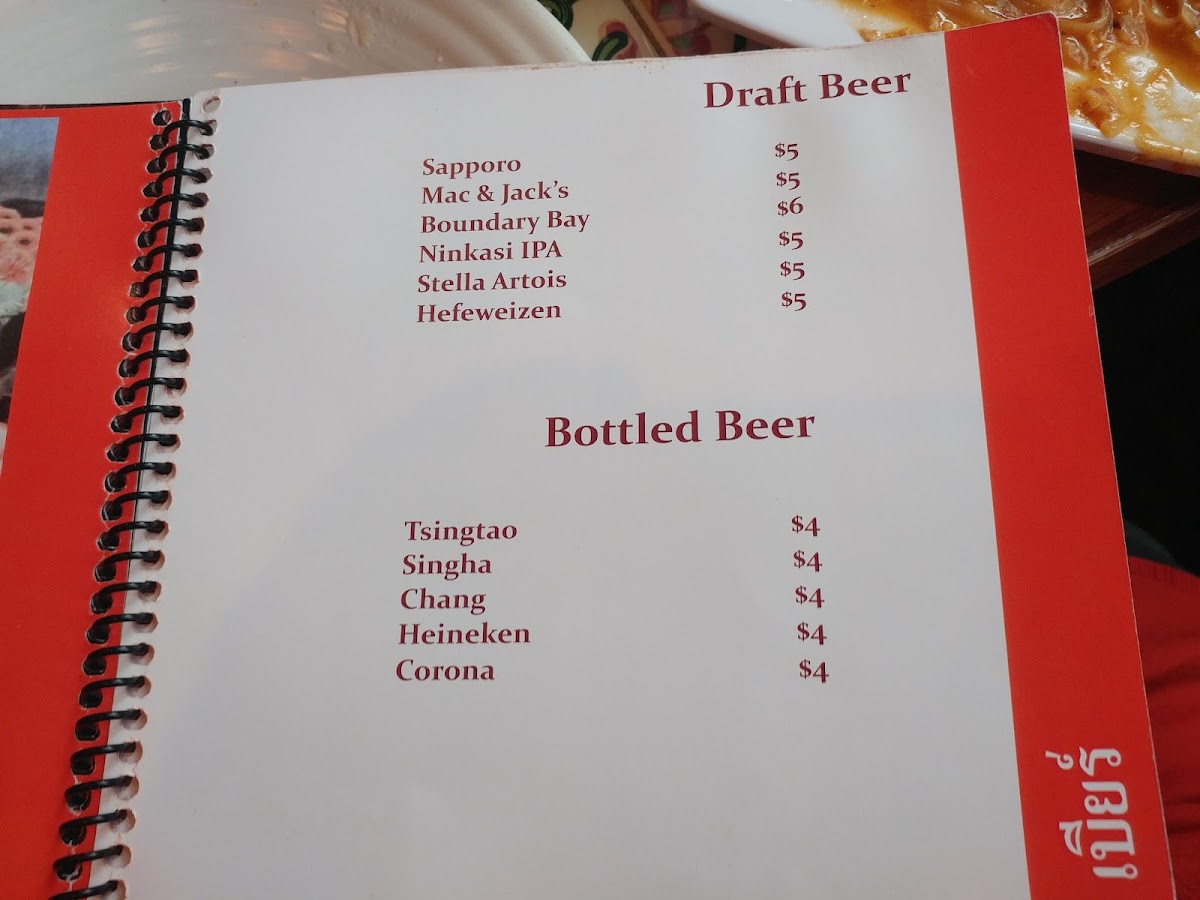 Draft Beer
Sapporo $5
Mac & Jack's $5
Boundary Bay $6
Ninkasi IPA $5
Stella Artois $5
Hefeweizen $5
Bottled Beer
Tsingtao $4
Singha $4
Chang $4
Heineken $4
Corona $4
เบียร์